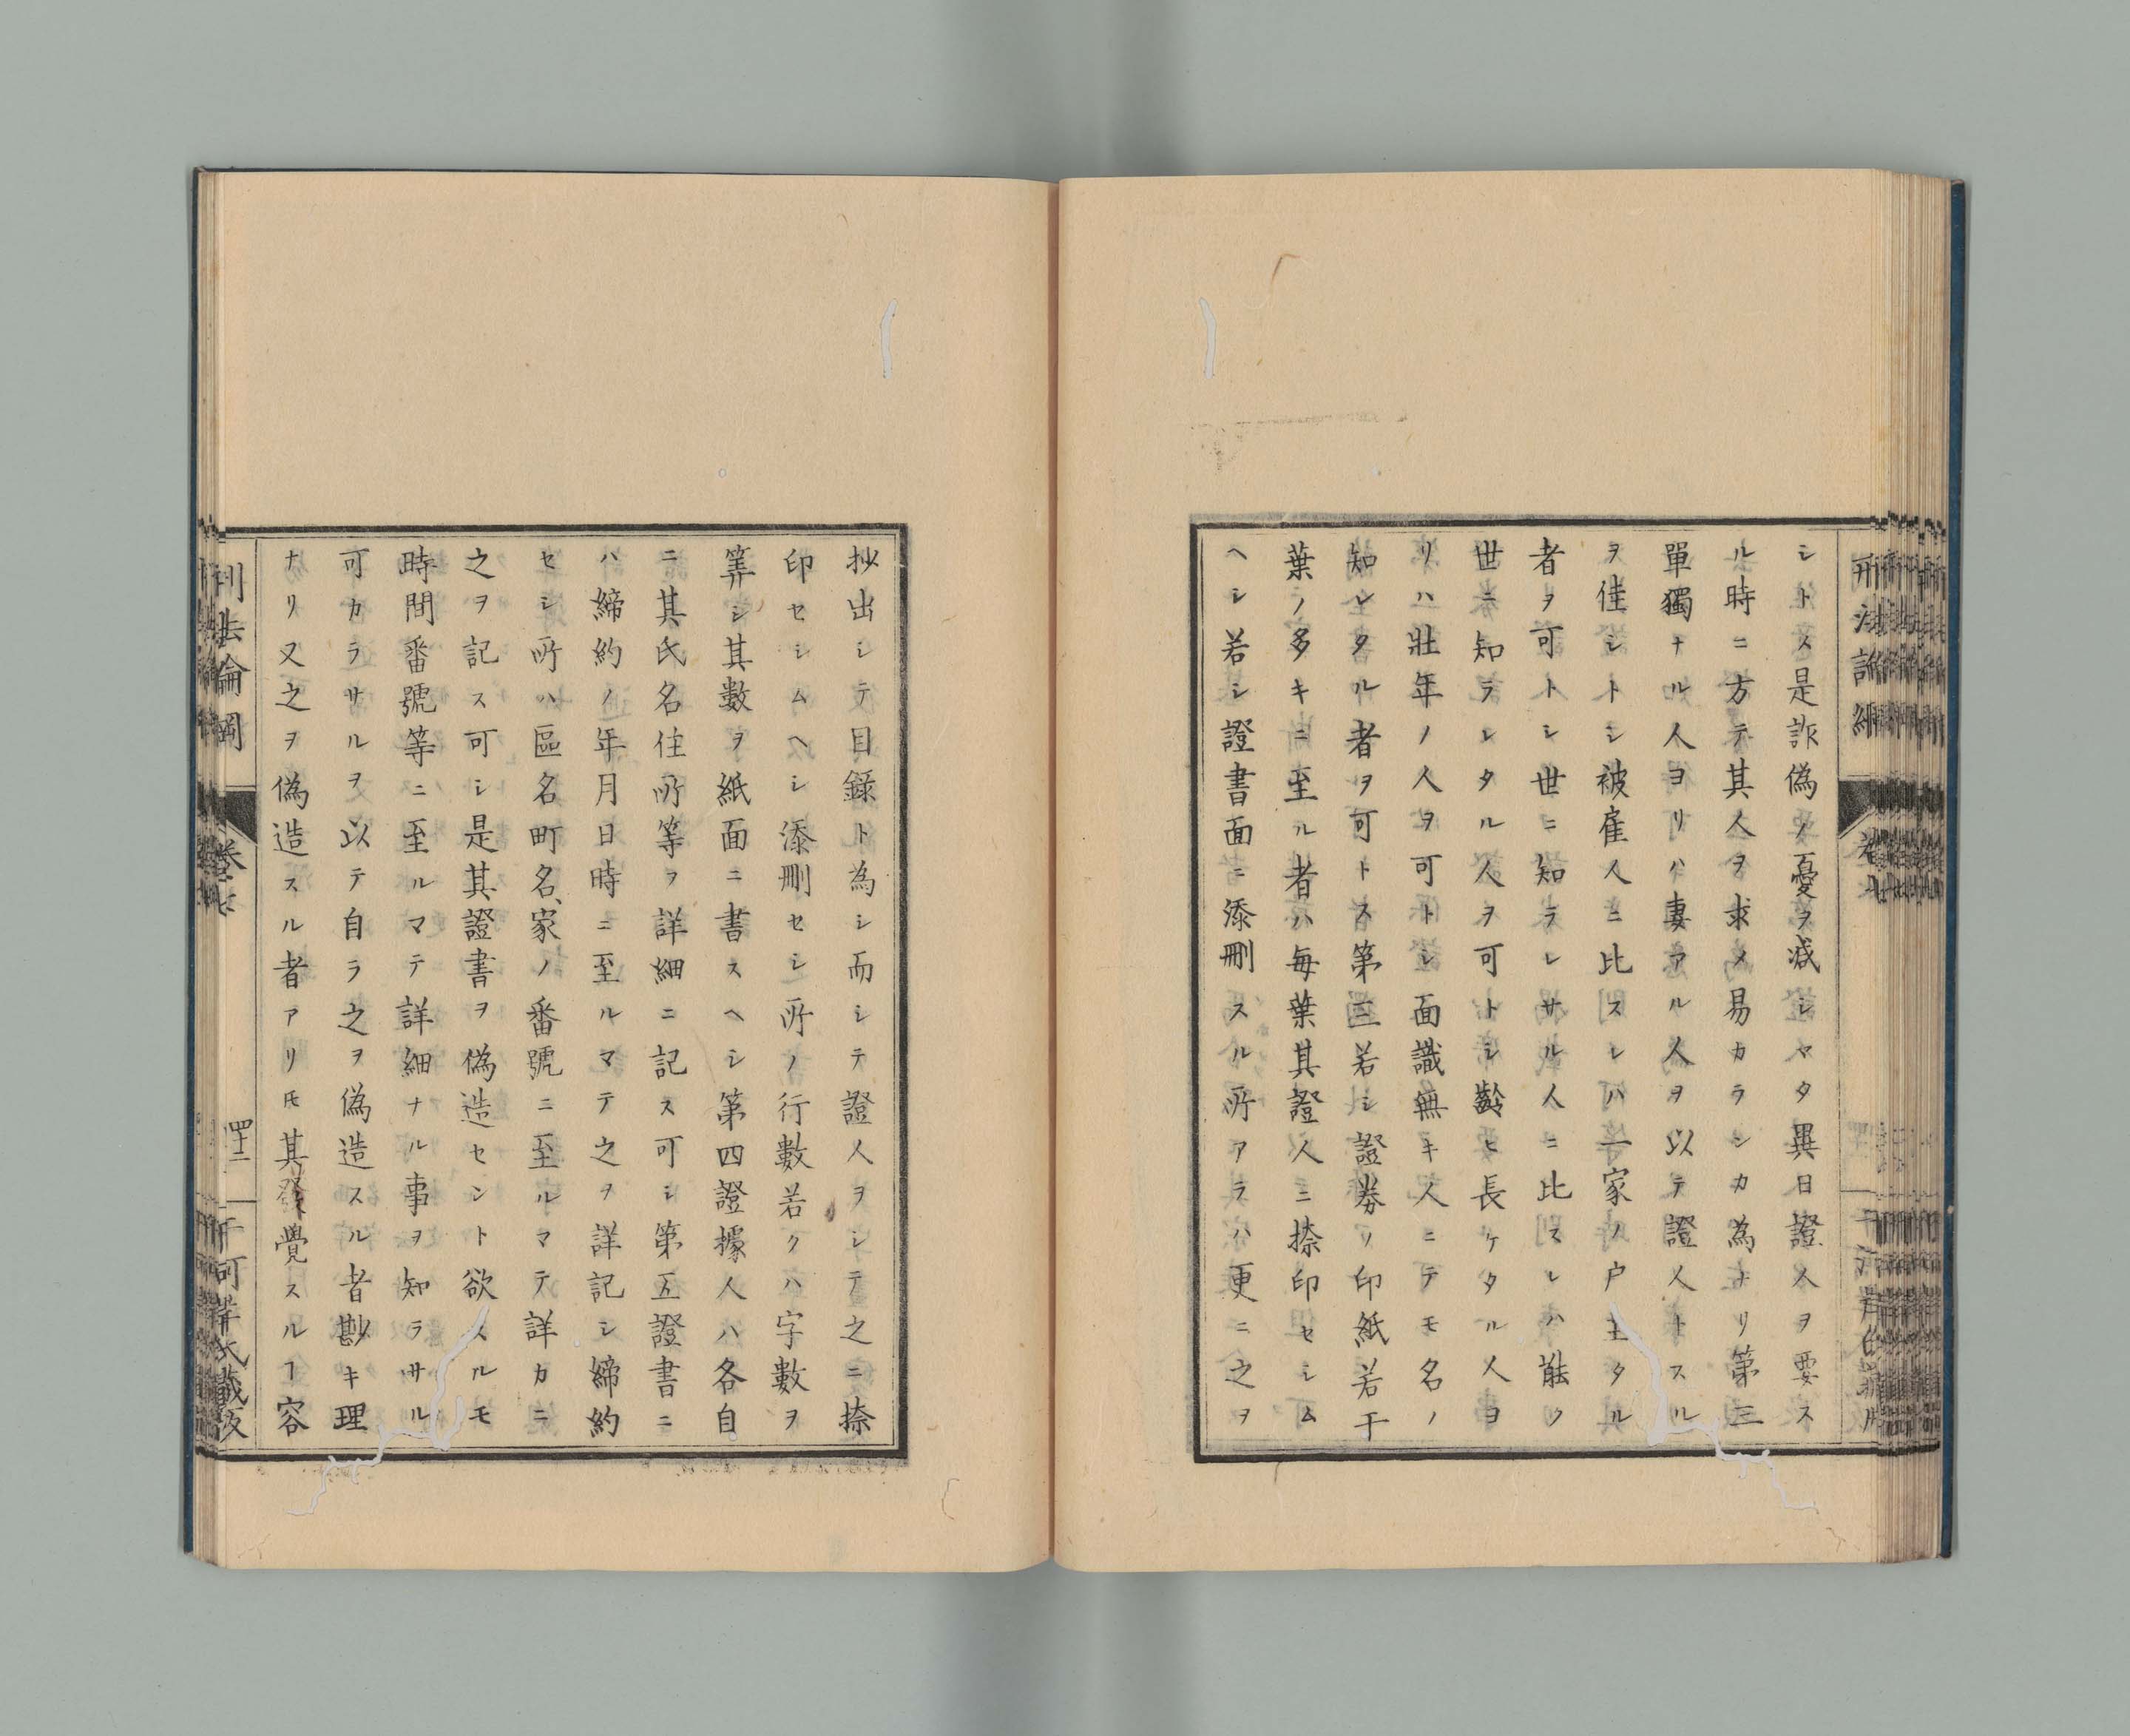 シトス是詐偽ノ憂ヲ減シマタ異日證人ヲ要ス
ル時ニ方テ其人ヲ求メ易カラシカ為ナリ第三
單獨ナル人ヨリハ妻アル人ヲ以テ證人トスル
ヲ佳シトシ被雇人ニ比スレハ一家ノ戸主タル
者ヲ可トシ世ニ知ラレサル人ニ比スレハ能ク
世ニ知ラレタル人ヲ可トシ齡ヒ長ケタル人ヨ
リハ壯年ノ人ヲ可トシ面識無キ人ニテモ名ノ
知レタル者ヲ可トス第三若シ證券ノ印紙若干
葉ノ多キニ至ル者ハ毎葉其證人ニ捺印セシム
ヘシ若シ證書面ニ添刪スル所アラハ更ニ之ヲ
抄出シテ目録ト為シ而シテ證人ヲシテ之ニ捺
印セシムヘシ添刪セシ所ノ行數若クハ字數ヲ
筭シ其數ヲ紙面ニ書スヘシ第四證據人ハ各自
ニ其氏名住所等ヲ詳細ニ記ス可シ第五證書ニ
ハ締約ノ年月日時ニ至ルマテ之ヲ詳記シ締約
セシ所ハ區名町名家ノ番號ニ至ルマテ詳カニ
之ヲ記ス可シ是其證書ヲ偽造セント欲スルモ
時間番號等ニ至ルマテ詳細ナル事ヲ知ラサル
可カラサルヲ以テ自ラ之ヲ偽造スル者尠キ理
ナリ又之ヲ偽造スル者アリ𪜈其發覺スルヿ容
刑法論綱
卷七
四十二